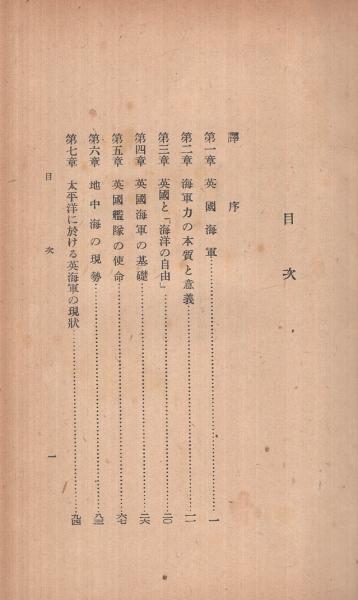 目次
譯序
第一章 英國海軍……一
第二章 海軍力の本質と意義……一一
第三章 英國と「海洋の自由」……二〇
第四章 英國海軍の基礎……二六
第五章 英國艦隊の使命……六七
第六章 地中海の現勢……八三
第七章 太平洋に於ける英海軍の現狀……九四
目次 一